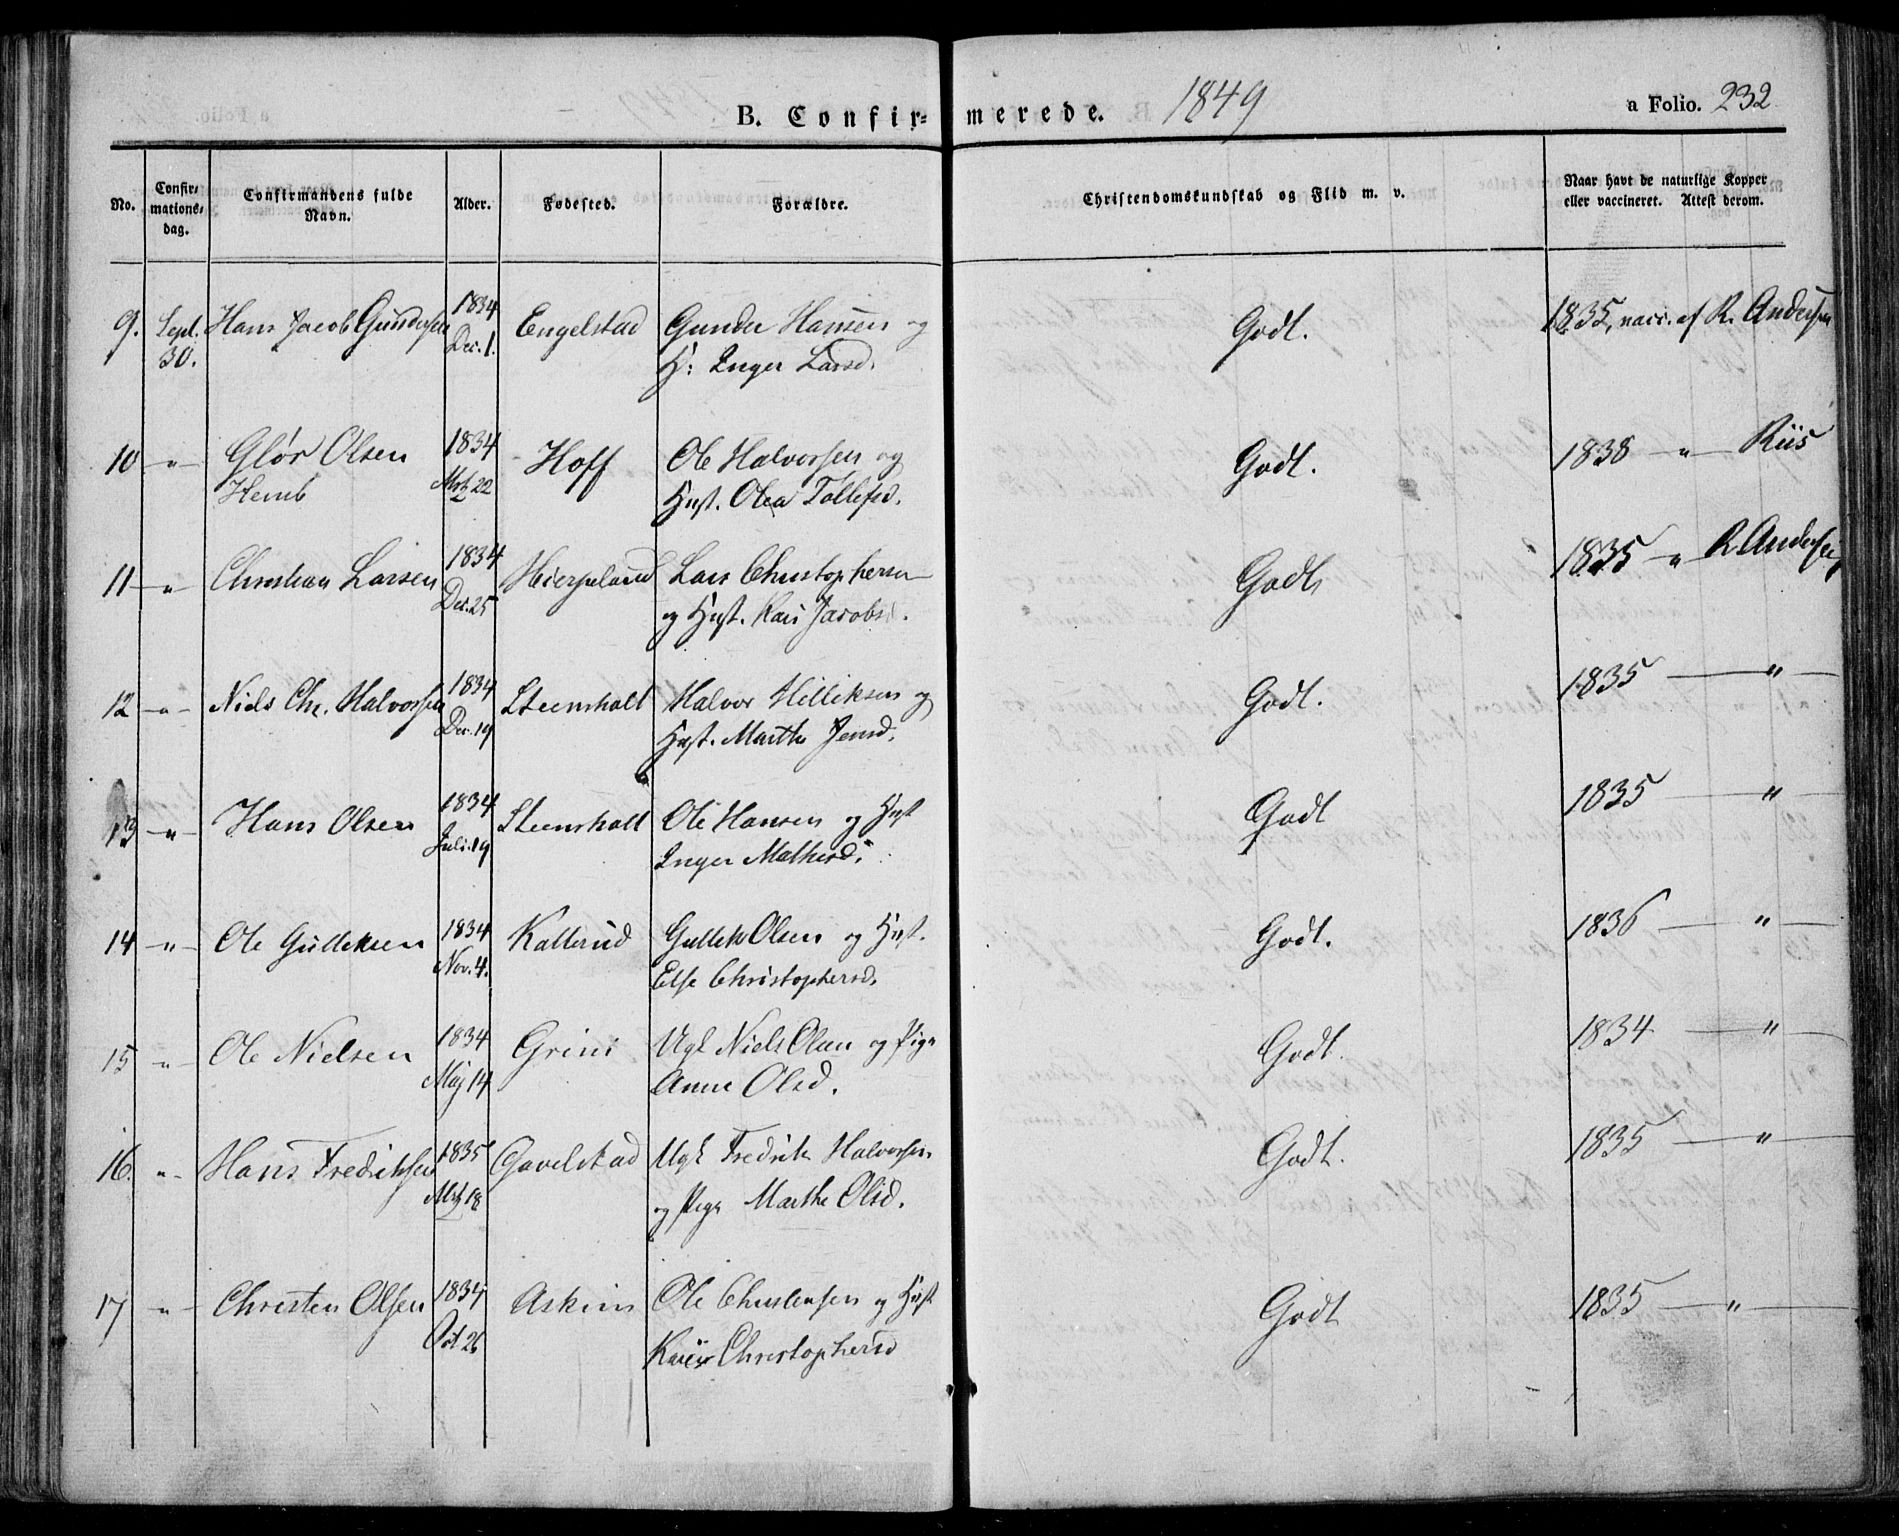 B. Confir= merede. 1849 a Folio. 232
No. Confir=mations=dag. Confirmandens fulde Navn. Alder. Fødested. Forældre. Christendomskundskab og Flid m. v. Naar havt de naturlige Kopper eller vaccineret. Attest derom.
9. Sept. Hans Jacob Gundersen 1834 Engelstad Gunder Hansen og Godt. 1835, vacc. af R. Andersen
30. Dec. 1. H: Inger Larsd.
10 — " — Glør Olsen 1834 Hoff Ole Halvorsen og Godt. 1838 — " — Riis
Hemb Mrtz 22 Hust. Olea Tollefsd.
11 — " — Christian Larsen 1834 Lars Christophersen Godt 1835 — " R. Andersen
Dec. 25 og Hust. Kari Jacobsd.
12 — " — Niels Chr. Halvorsen 1834 Steensholt Halvor Godt. 1835 — " —
Dec. 19 Hust. Marthe Jensd.
13 — " — Hans Olsen 1834 Steensholt Ole Hansen og Hust Godt 1835 — " —
Juli. 19 Inger Mathisd.
14 — " — Ole Gulleksen 1834 Kallerud Gullek Olsen og Hust. Godt. 1836 — " —
Nov. 4. Else Christophersd.
15 " — Ole Nielsen 1834 Grini Ugk Niels Olsen og Pige Godt. 1834 — " —
Maj 14 Anne Olsd.
16. " — Hans Fredriksen 1835 Gavelstad Ugk Fredrik Halvorsen Godt. 1835 — " —
Mrtz 18 og Pige Marthe Olsd.
17 " — Christen Olsen 1834 Askim Ole Christensen og Hust Godt 1835 — " —
Oct 26 Kari Christophersd